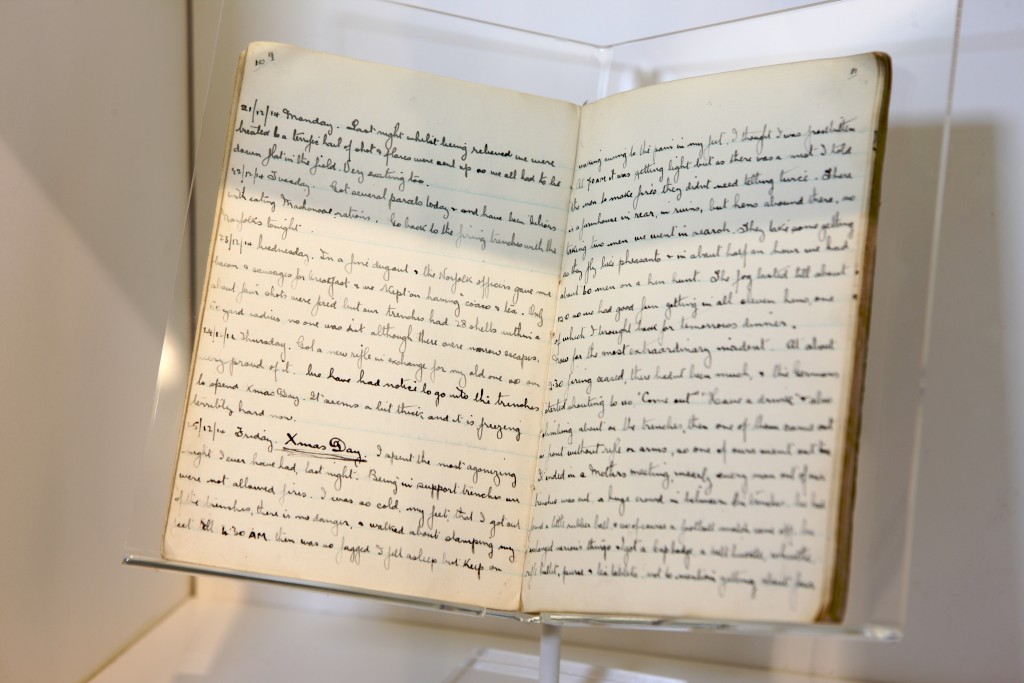 21/12/14 Monday. Last night whilst being relieved we were
treated to a terrific hail of shot & flares were sent up so we all had to lie
down flat in the field. Very exciting too.
22/12/14 Tuesday. Got several parcels today & and have been
with eating Machonocie rations. Go back to the firing trenches with the
Norfolks tonight.
23/12/14 Wednesday. In a fine dugout & the Norfolk officers gave me
bacon & sausages for breakfast & we kept on having cocoa & tea. Only
about four shots were fired but our trenches had 28 shells within a
yard radius, no one was hit although there were narrow escapes.
24/12/14 Thursday. Got a new rifle in exchange for my old one so am
very proud of it. We have had notice to go into the trenches
to spend Xmas Day. It seems a bit thick and it is freezing
terribly hard now.
25/12/14 Friday. Xmas Day. I spent the most agonizing
night I ever have had, last night. Being in support trenches we
were not allowed fires. I was so cold, my feet, that I got out
of the trenches, there is no danger, & walked about stamping my
feet till 4.30 AM then was so fagged I fell asleep but keep on
waking owing to the pain in my feet, I thought I was frostbitten
At 7.0 AM it was getting light but as there was a mist I told
the men to make fires they didnt need telling twice. There
is a farmhouse in rear, in ruins, but hens abound there, so
taking two men we went in search. They take some getting
as they fly like pheasants & in about half an hour we had
about 60 men on a hen hunt. The fog lasted till about
so we had good fun getting in all eleven hens, one
of which I brought back for tomorrows dinner.
Now for the most extraordinary incident. At about
2.30 firing ceased, there hadnt been much, & the Germans
started shouting to us, "Come out" "Have a drink" & also
climbing about on the trenches, then one of them came out
in front without rifle or arms, so one of ours went out too
It ended in a Mothers meeting, nearly every man out of our
trenches was out, a huge crowd in between the trenches.
a little rubber ball & so of course a football match came off. We
exchanged various things & I got a cap badge, a whistle
bullet, purse & not to mention getting about four